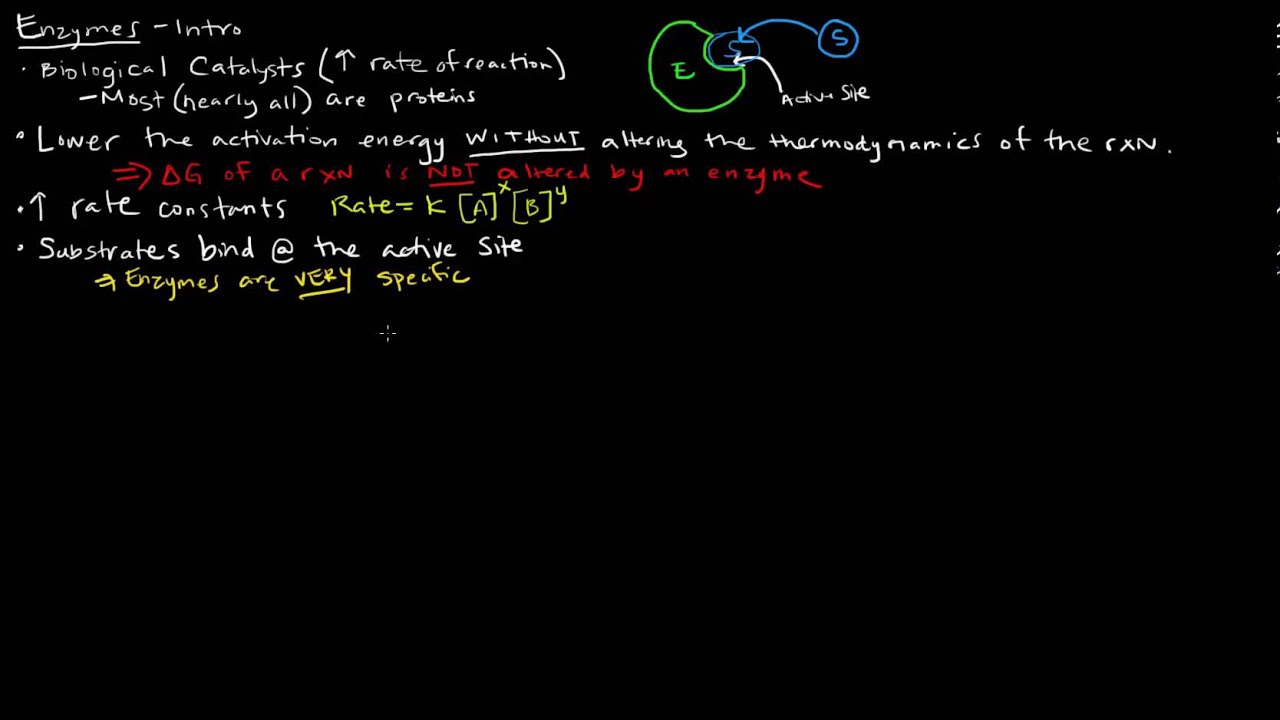 Enzymes - Intro
· Biological Catalysts (↑ rate of reaction)
- Most (nearly all) are proteins
E
S
S
Active Site
· Lower the activation energy WITHOUT altering the thermodynamics of the rxn.
⇒ ΔG of a rxn is NOT altered by an enzyme
· ↑ rate constants Rate = K [A]^x [B]^y
· Substrates bind @ the active Site
⇒ Enzymes are VERY specific